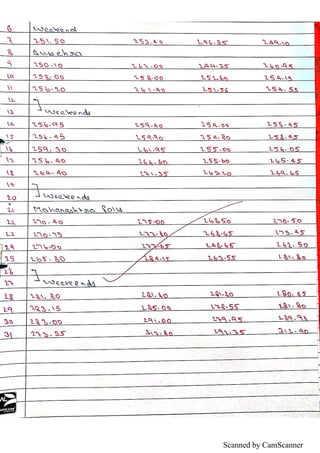 6 Weekend
7 251.50 253.40 246.35 249.10
8 Dussehra
9 250.10 262.00 244.35 260.95
10 258.00 258.00 251.60 254.15
11 256.20 261.40 251.56 254.55
12
13 Weekends
14 256.95 259.40 254.00 255.45
15 256.45 259.90 254.80 258.45
16 259.30 261.95 255.00 256.05
17 256.40 266.60 255.60 265.45
18 264.40 271.35 263.20 269.65
19
20 Weekends
21 Maharashtra Polls
22 270.40 275.00 268.50 270.50
23 270.75 277.80 268.65 273.45
24 274.00 277.65 268.65 26
25 265.80 284.15 263.55 281.80
26
27 Weekends
28 281.80 281.80 281.80 280.65
29 283.15 285.00 278.55 281.80
30 283.00 291.00 279.95 289.95
31 273.25 317.80 292.35 312.90
Scanned by CamScanner